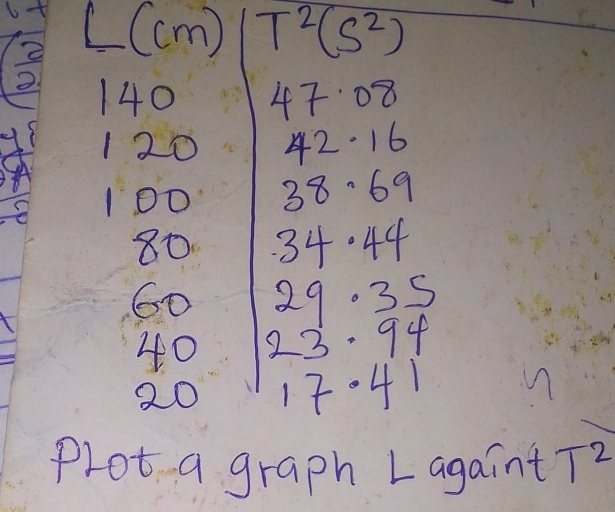 L(cm) T²(S²)
140 47.08
120 42.16
100 38.69
80 34.44
60 29.35
40 23.94
20 17.41
Plot a graph L againt T²